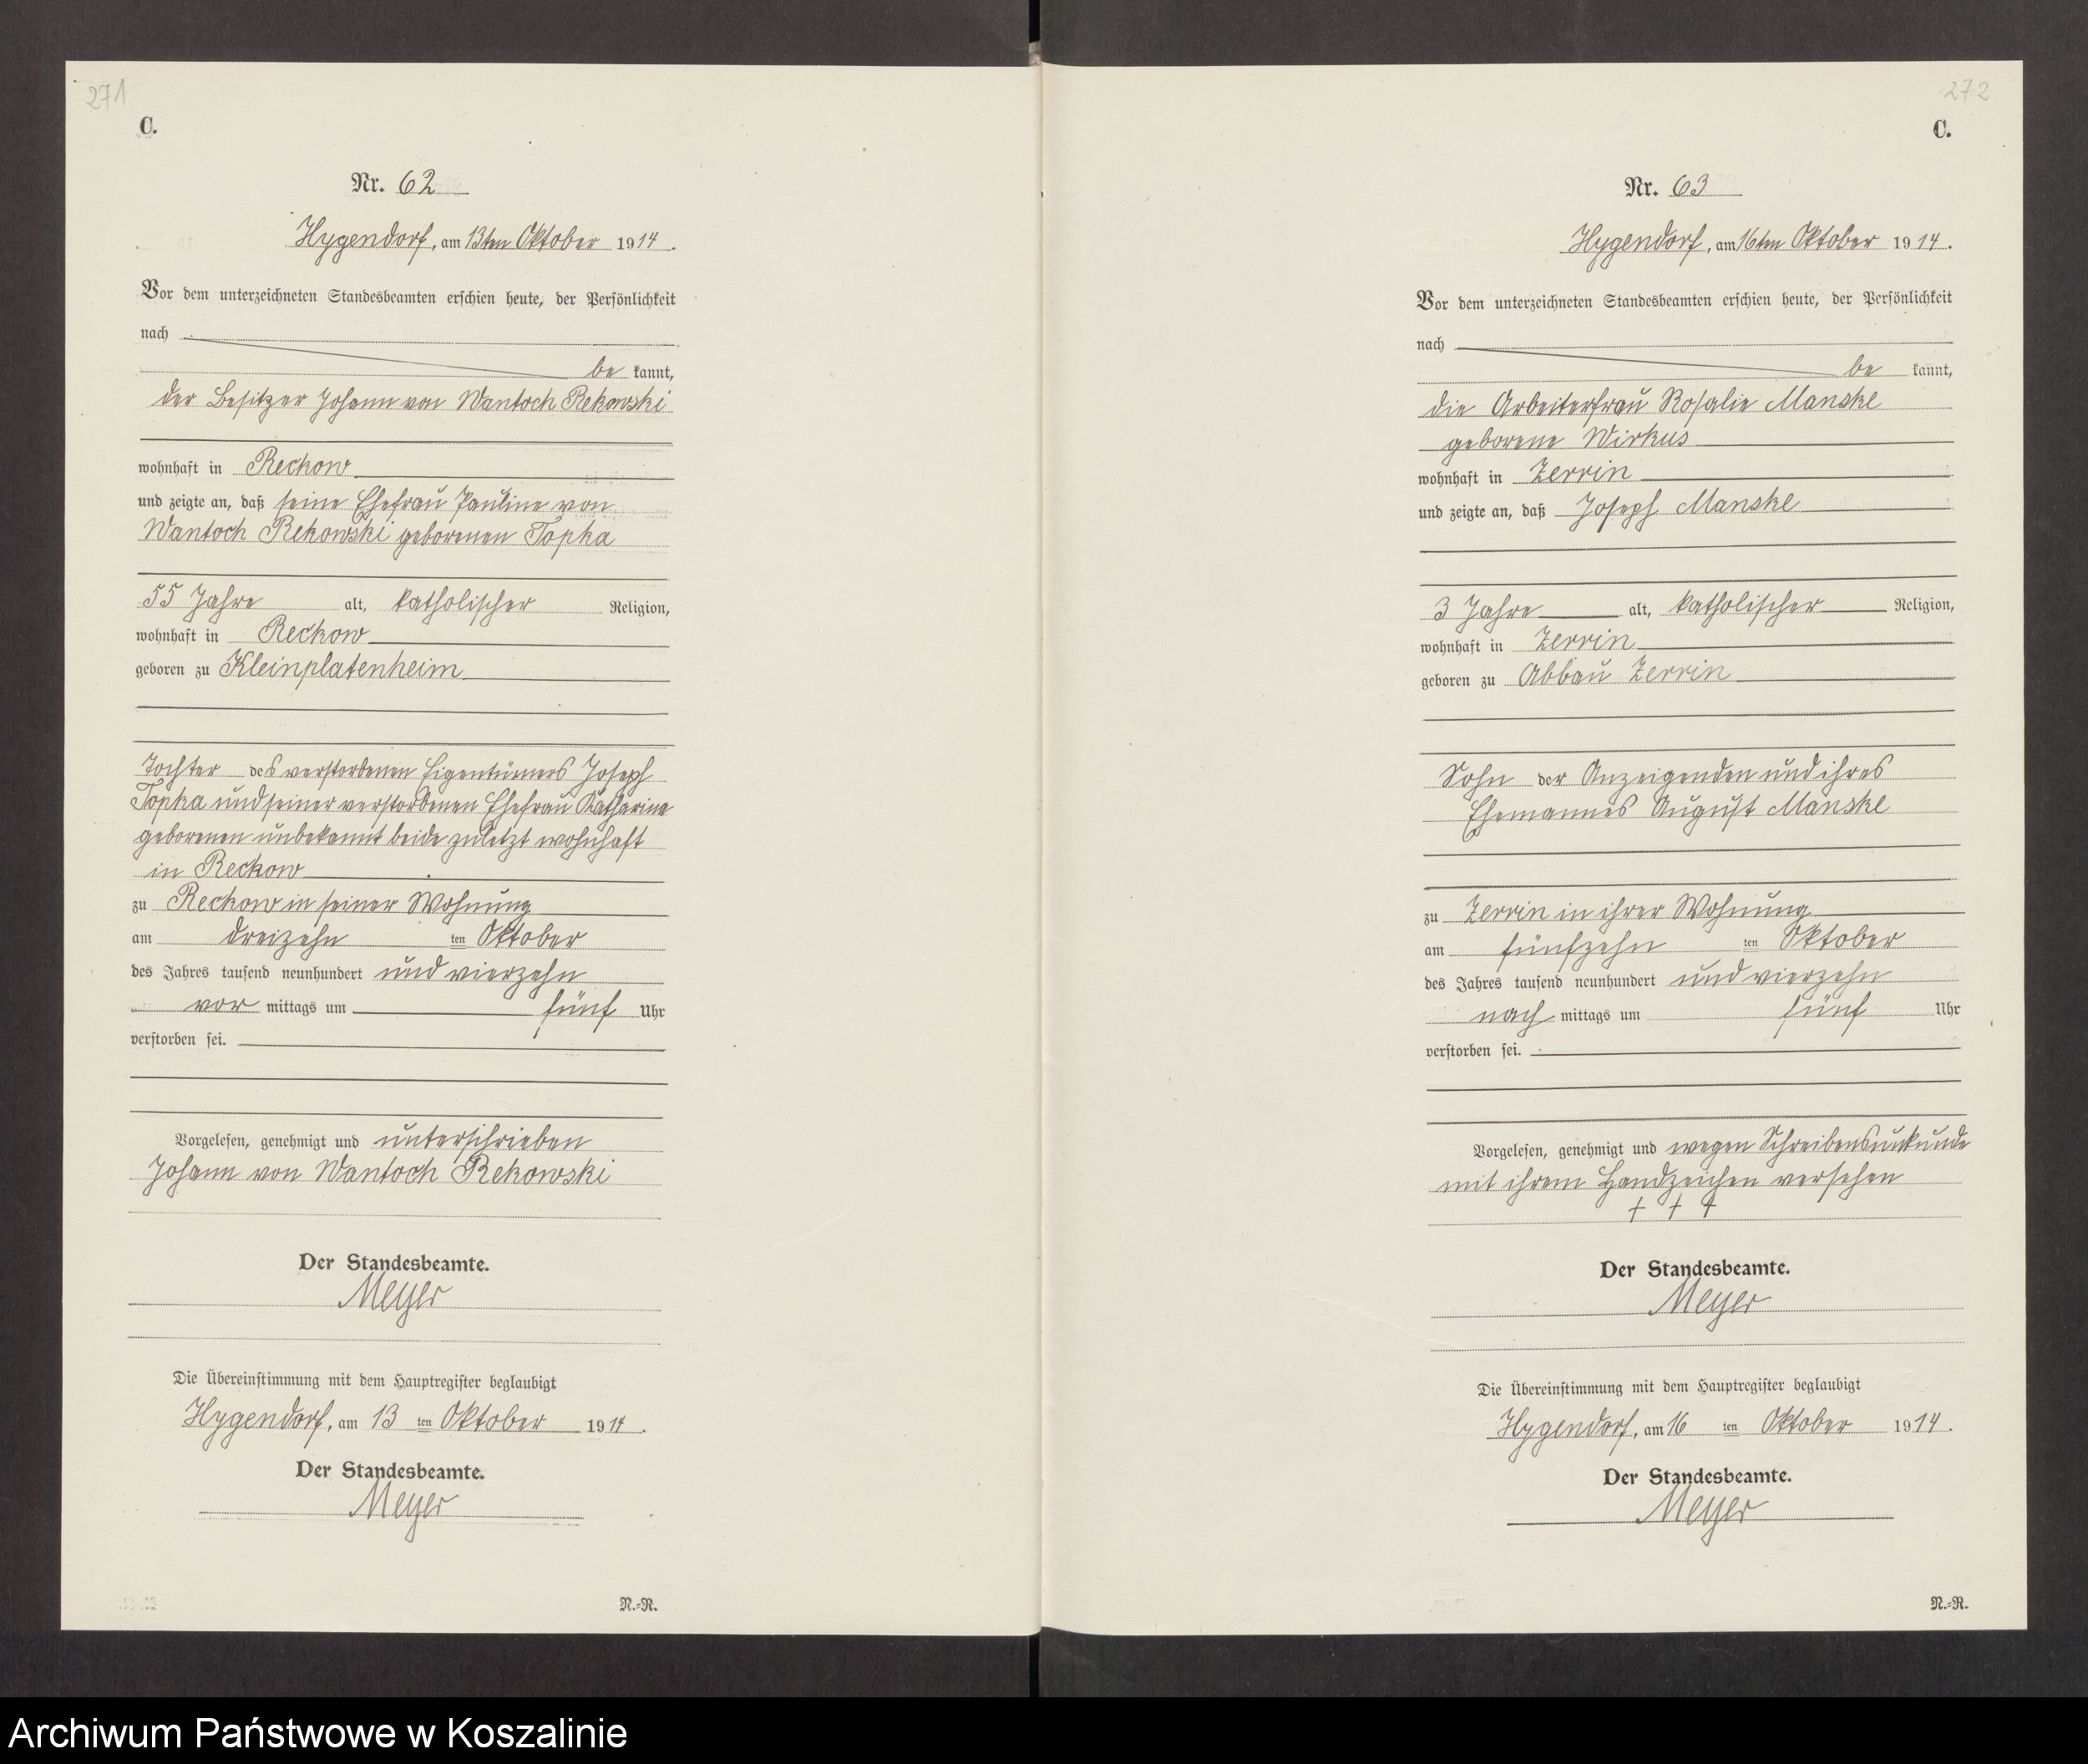 271
C.
Nr. 62
Hygendorf, am 13ten Oktober 1914.
Vor dem unterzeichneten Standesbeamten erschien heute, der Persönlichkeit
nach
bekannt,
der Besitzer Johann von Wantoch Rekowski
wohnhaft in Reckow
und zeigte an, daß seine Ehefrau Pauline von
Wantoch Rekowski geborenen Topka
55 Jahre alt, katholischer Religion,
wohnhaft in Reckow
geboren zu Kleinplatenheim
Tochter des verstorbenen Eigentümers Joseph
Topka und seiner verstorbenen Ehefrau Katharina
geborenen unbekannt beide zuletzt wohnhaft
in Reckow
zu Reckow in seiner Wohnung
am dreizehnten Oktober
des Jahres tausend neunhundert und vierzehn
vormittags um fünf Uhr
verstorben sei.
Vorgelesen, genehmigt und unterschrieben
Johann von Wantoch Rekowski
Der Standesbeamte.
Meyer
Die Übereinstimmung mit dem Hauptregister beglaubigt
Hygendorf, am 13ten Oktober 1914.
Der Standesbeamte.
Meyer
N.-R.
272
C.
Nr. 63
Hygendorf, am 16ten Oktober 1914.
Vor dem unterzeichneten Standesbeamten erschien heute, der Persönlichkeit
nach
bekannt,
die Arbeiterfrau Rosalie Manske
geborene Wirkus
wohnhaft in Zerrin
und zeigte an, daß Joseph Manske
3 Jahre alt, katholischer Religion,
wohnhaft in Zerrin
geboren zu Abbau Zerrin
Sohn der Anzeigenden und ihres
Ehemannes August Manske
zu Zerrin in ihrer Wohnung
am fünfzehnten Oktober
des Jahres tausend neunhundert und vierzehn
nachmittags um fünf Uhr
verstorben sei.
Vorgelesen, genehmigt und wegen Schreibensunkunde
mit ihrem Handzeichen versehen
+ + +
Der Standesbeamte.
Meyer
Die Übereinstimmung mit dem Hauptregister beglaubigt
Hygendorf, am 16ten Oktober 1914.
Der Standesbeamte.
Meyer
N.-R.
Archiwum Państwowe w Koszalinie